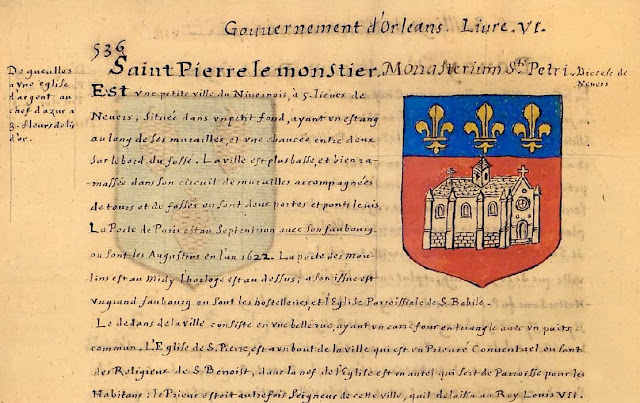 Gouvernement d'Orleans. Liure. VI.
536
Saint Pierre le monstier, Monasterium Sti. Petri.
Diocese de
Nevers
De gueulles
a vne eglise
d'argent au
chef d'azur a
3. fleurs de lis
d'or.
Est vne petite ville du Niuernois, a 5. lieues de
Nevers, Située dans vn petit fond, ayant vn estang
au long de ses murailles, et vne chaucée entre deux
sur le bord du fossé. La ville est plus basse, et bien ra-
massée dans son circuit de murailles accompagnées
de tours et de fosses ou sont deux portes et pont leuis.
La Porte de Paris est au Septentrion avec son faubourg
ou sont les Augustins en l'an 1622. La porte des mou-
lins est au Midy l'horloge est au dessus; a son issue est
vn grand faubourg ou sont les hostelleries, et l'Eglise Parroissiale de S. Babile.
Le dedans de la ville consiste en vne belle rue, ayant vn carefour en triangle avec vn puits
commun. L'Eglise de S. Pierre, est au bout de la ville qui est vn Prieuré Conuentuel ou sont
des Religieux de S. Benoist, dans la nef de l'Eglise est vn autel qui sert de Parroisse pour les
Habitans: le Prieur estoit autrefois Seigneur de cette ville, qu'il delaissa au Roy Louis VII.